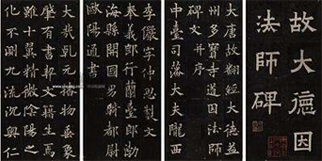 故大德因
法師碑
大唐故翻經大德益
州多寶寺道因法師
碑文并序
中臺司藩大夫隴西
李儼字仲思製文
奉義郎行蘭臺郎渤
海縣開國男騎都尉
歐陽通書
大哉乾元播物垂象
肇有書契文籍生焉
雖十翼精微陰陽之
化不測九流沉奧仁